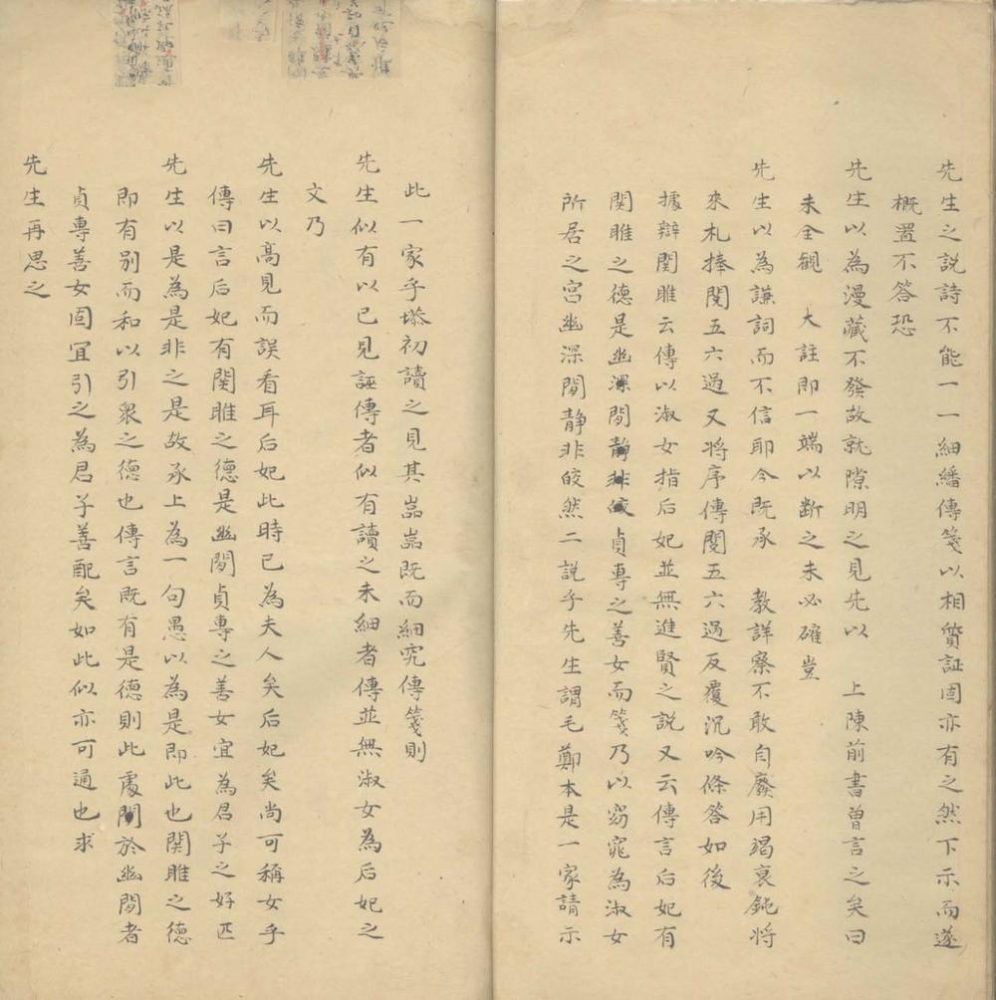 先生之説詩不能一一細繙傳箋以相質証固亦有之然下示而遂
概置不答恐
先生以為漫藏不發故就隙明之見先以 上陳前書曽言之矣曰
未全觀 大註即一端以断之未必確豈
先生以為謙詞而不信耶今既承 教詳察不敢自廢用竭衷鈍將
來札捧閱五六過又將序傳閱五六過反覆沉吟條答如後
據辯關雎云傳以淑女指后妃並無進賢之説又云傳言后妃有
関雎之德是幽深閒靜貞專之善女而箋乃以窈窕為淑女
所居之宫幽深閒靜非皎然二説乎先生謂毛鄭本是一家請示
此一家乎塨初讀之見其嵓嵓既而細究傳箋則
先生似有以已見誣傳者似有讀之未細者傳並無淑女為后妃之
文乃
先生以髙見而誤看耳后妃此時已為夫人矣后妃矣尚可稱女乎
傳曰言后妃有関雎之德是幽閒貞專之善女宜為君子之好匹
先生以是為是非之是故承上為一句愚以為是即此也関雎之德
即有别而和以引衆之德也傳言既有是德則此處関於幽閒者
貞專善女固宜引之為君子善配矣如此似亦可通也求
先生再思之